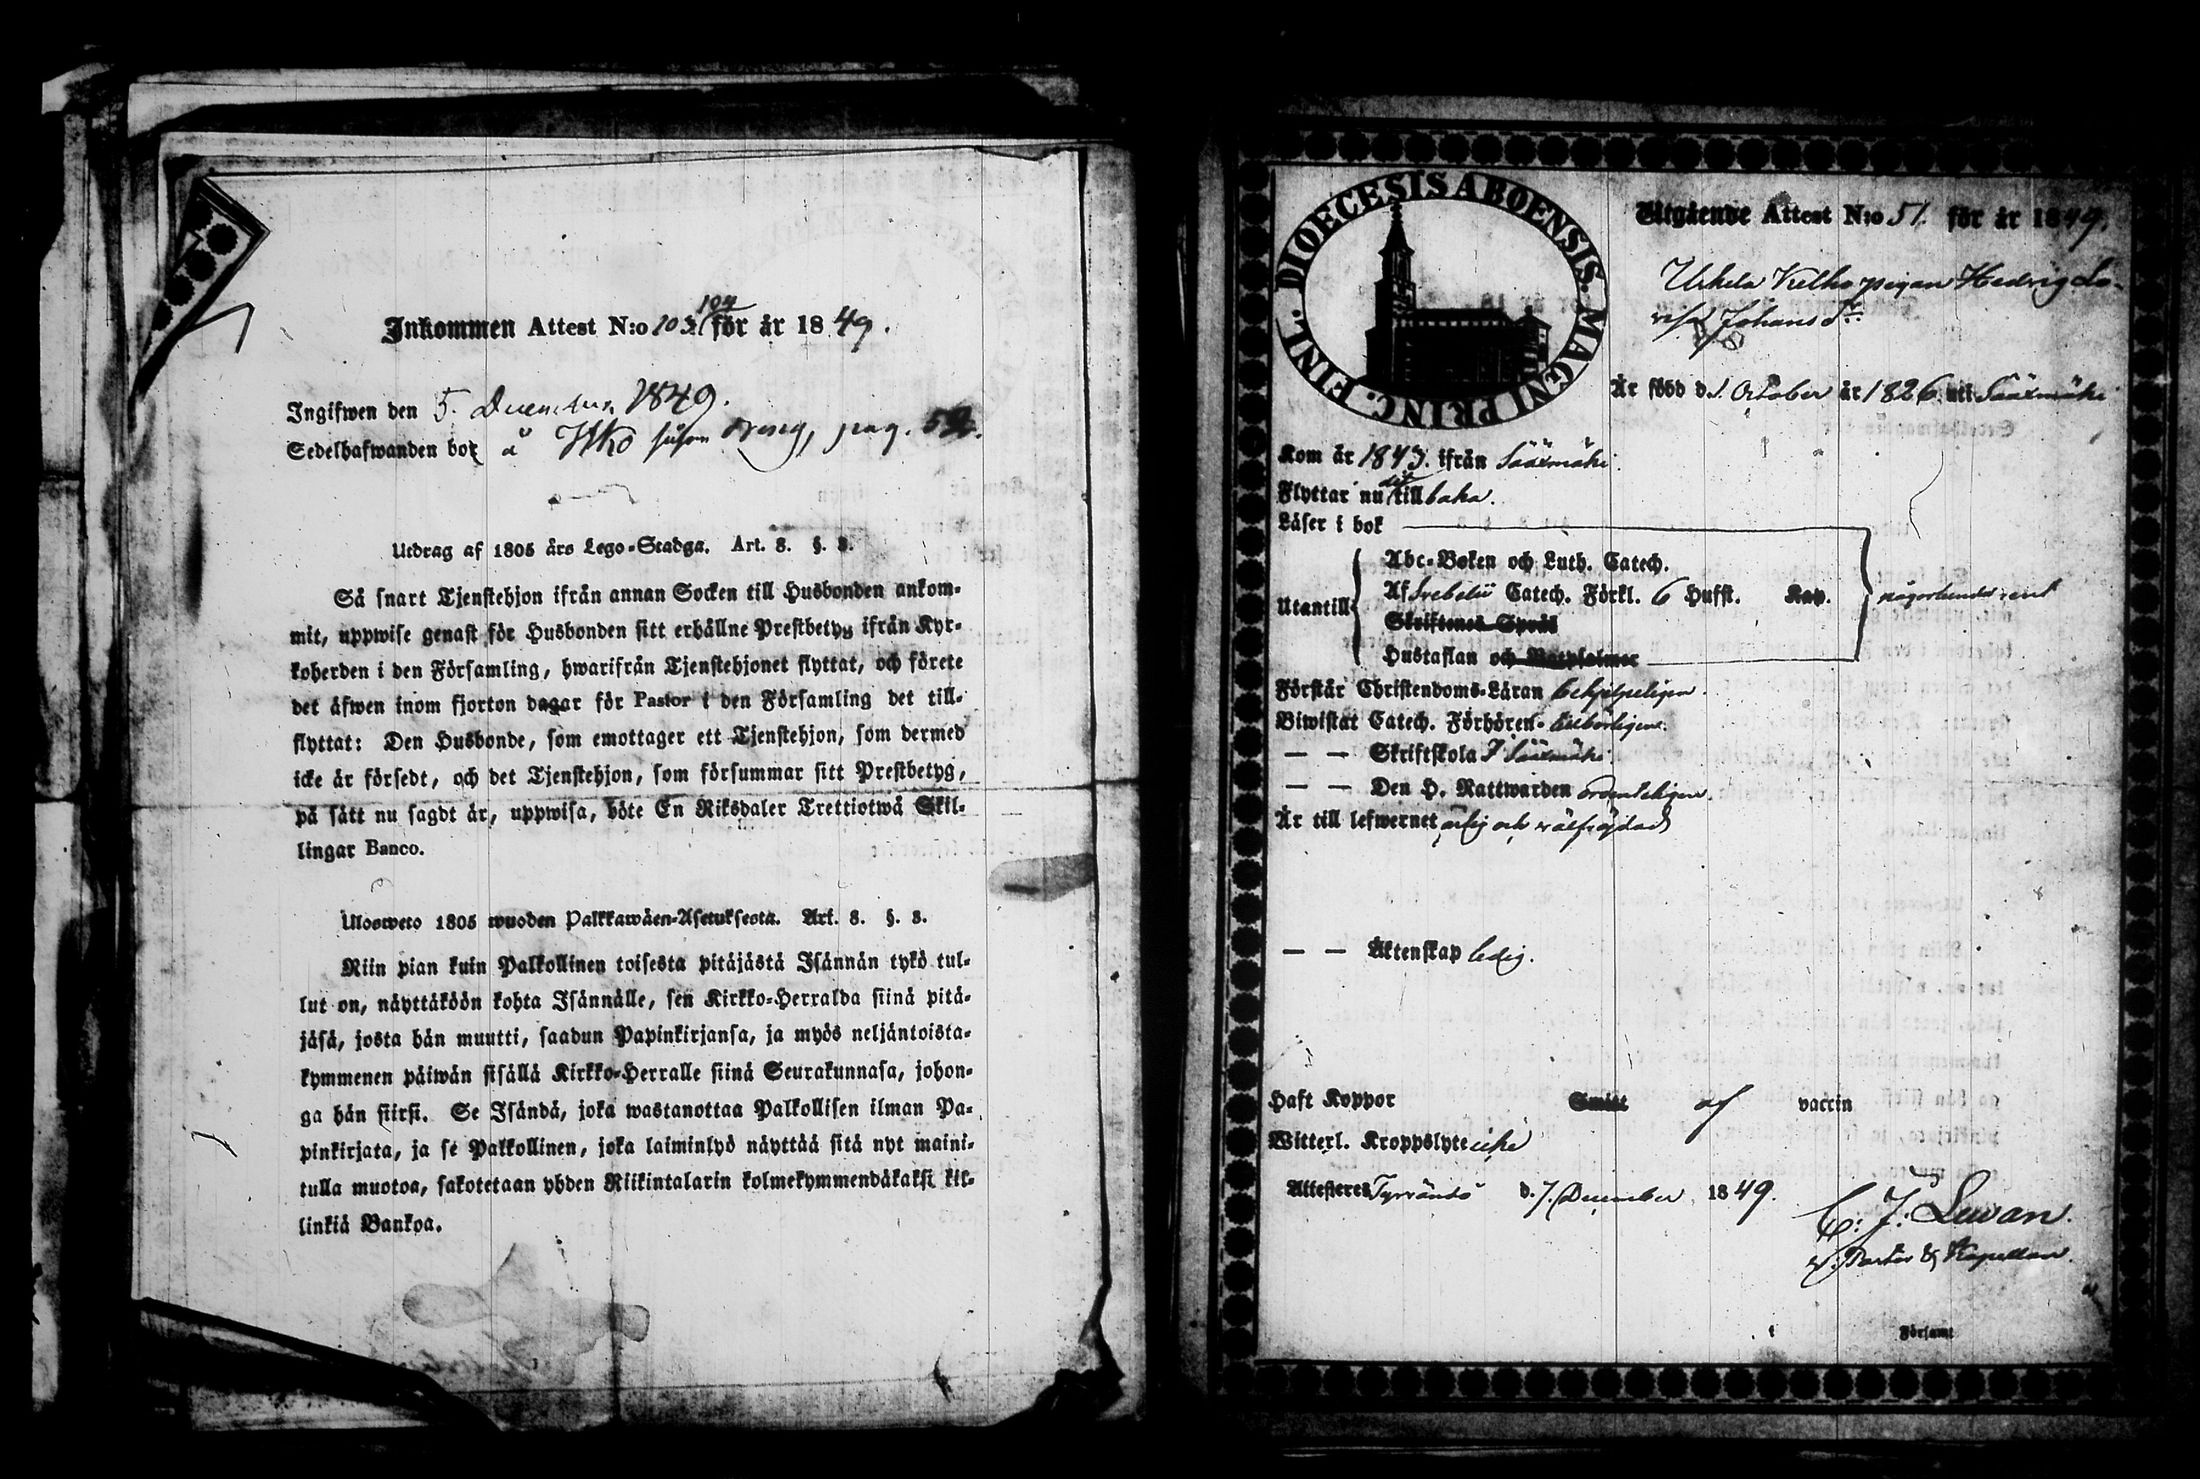 Inkommen Attest N:o 103. 104 för år 1849.
Ingifwen den 5. December 1849.
Sedelhafwanden bor å pag. 52.
Utdrag af 1805 års Lego-Stadga. Art. 8. §. 8.
Så snart Tjenstehjon ifrån annan Socken till Husbonden ankom-
mit, uppwise genast för Husbonden sitt erhållne Prestbetyg ifrån Kyr-
koherden i den Församling, hwarifrån Tjenstehjonet flyttat, och förete
det äfwen inom fjorton dagar för Pastor i den Församling det till-
flyttat: Den Husbonde, som emottager ett Tjenstehjon, som dermed
icke är försedt, och det Tjenstehjon, som försummar sitt Prestbetyg,
på sätt nu sagdt är, uppwisa, böte En Riksdaler Trettiotwå Skil-
lingar Banco.
Ulosweto 1805 wuoden Palkkawäen-Asetuksesta. Art. 8. §. 8.
Niin pian kuin Palkollinen toisesta pitäjästä Isännän tykö tul-
lut on, näyttäköön kohta Isännälle, sen Kirkko-Herralda siinä pitä-
jäsä, josta hän muutti, saadun Papinkirjansa, ja myös neljäntoista-
kymmenen päiwän sisällä Kirkko-Herralle siinä Seurakunnasa, johon-
ga hän siirsi. Se Isändä, joka wastanottaa Palkollisen ilman Pa-
pinkirjata, ja se Palkollinen, joka laiminlyö näyttää sitä nyt maini-
tulla muotoa, sakotetaan yhden Riikintalarin kolmekymmendäkaksi kil-
linkiä Bankoa.
DIOECESIS ABOENSIS. MAGNI PRINC. FINL.
Utgående Attest N:o 51. för år 1849.
pigan Hedvig Lo-
visa Johans dr.
Är född d. 1 October år 1826 uti Sääxmäki
Kom år 1843. ifrån Sääxmäki.
Flyttar nu dit tillbaka.
Läser i bok
Utantill
Abc-Boken och Luth. Catech.
Af Svebelii Catech. Förkl. 6 Hufst. Kap.
Skriftenes Språk
Hustaflan och Botpsalmer
någorlunda rent
Förstår Christendoms-Läran behjelpeligen.
Biwistat Catech. Förhören behörligen.
— — Skriftskola I Sääxmäki
— — Den H. Nattwarden ordenteligen.
Är till lefwernet ärlig och välfrejdad
— — Äktenskap ledig.
Haft Koppor Smitt af vaccin
Witterl. Kroppslyte icke
Attesteres Tyrväntö d. 7. December 1849.
C: J: Levan.
v. Pastor & Kapellan.
Församt